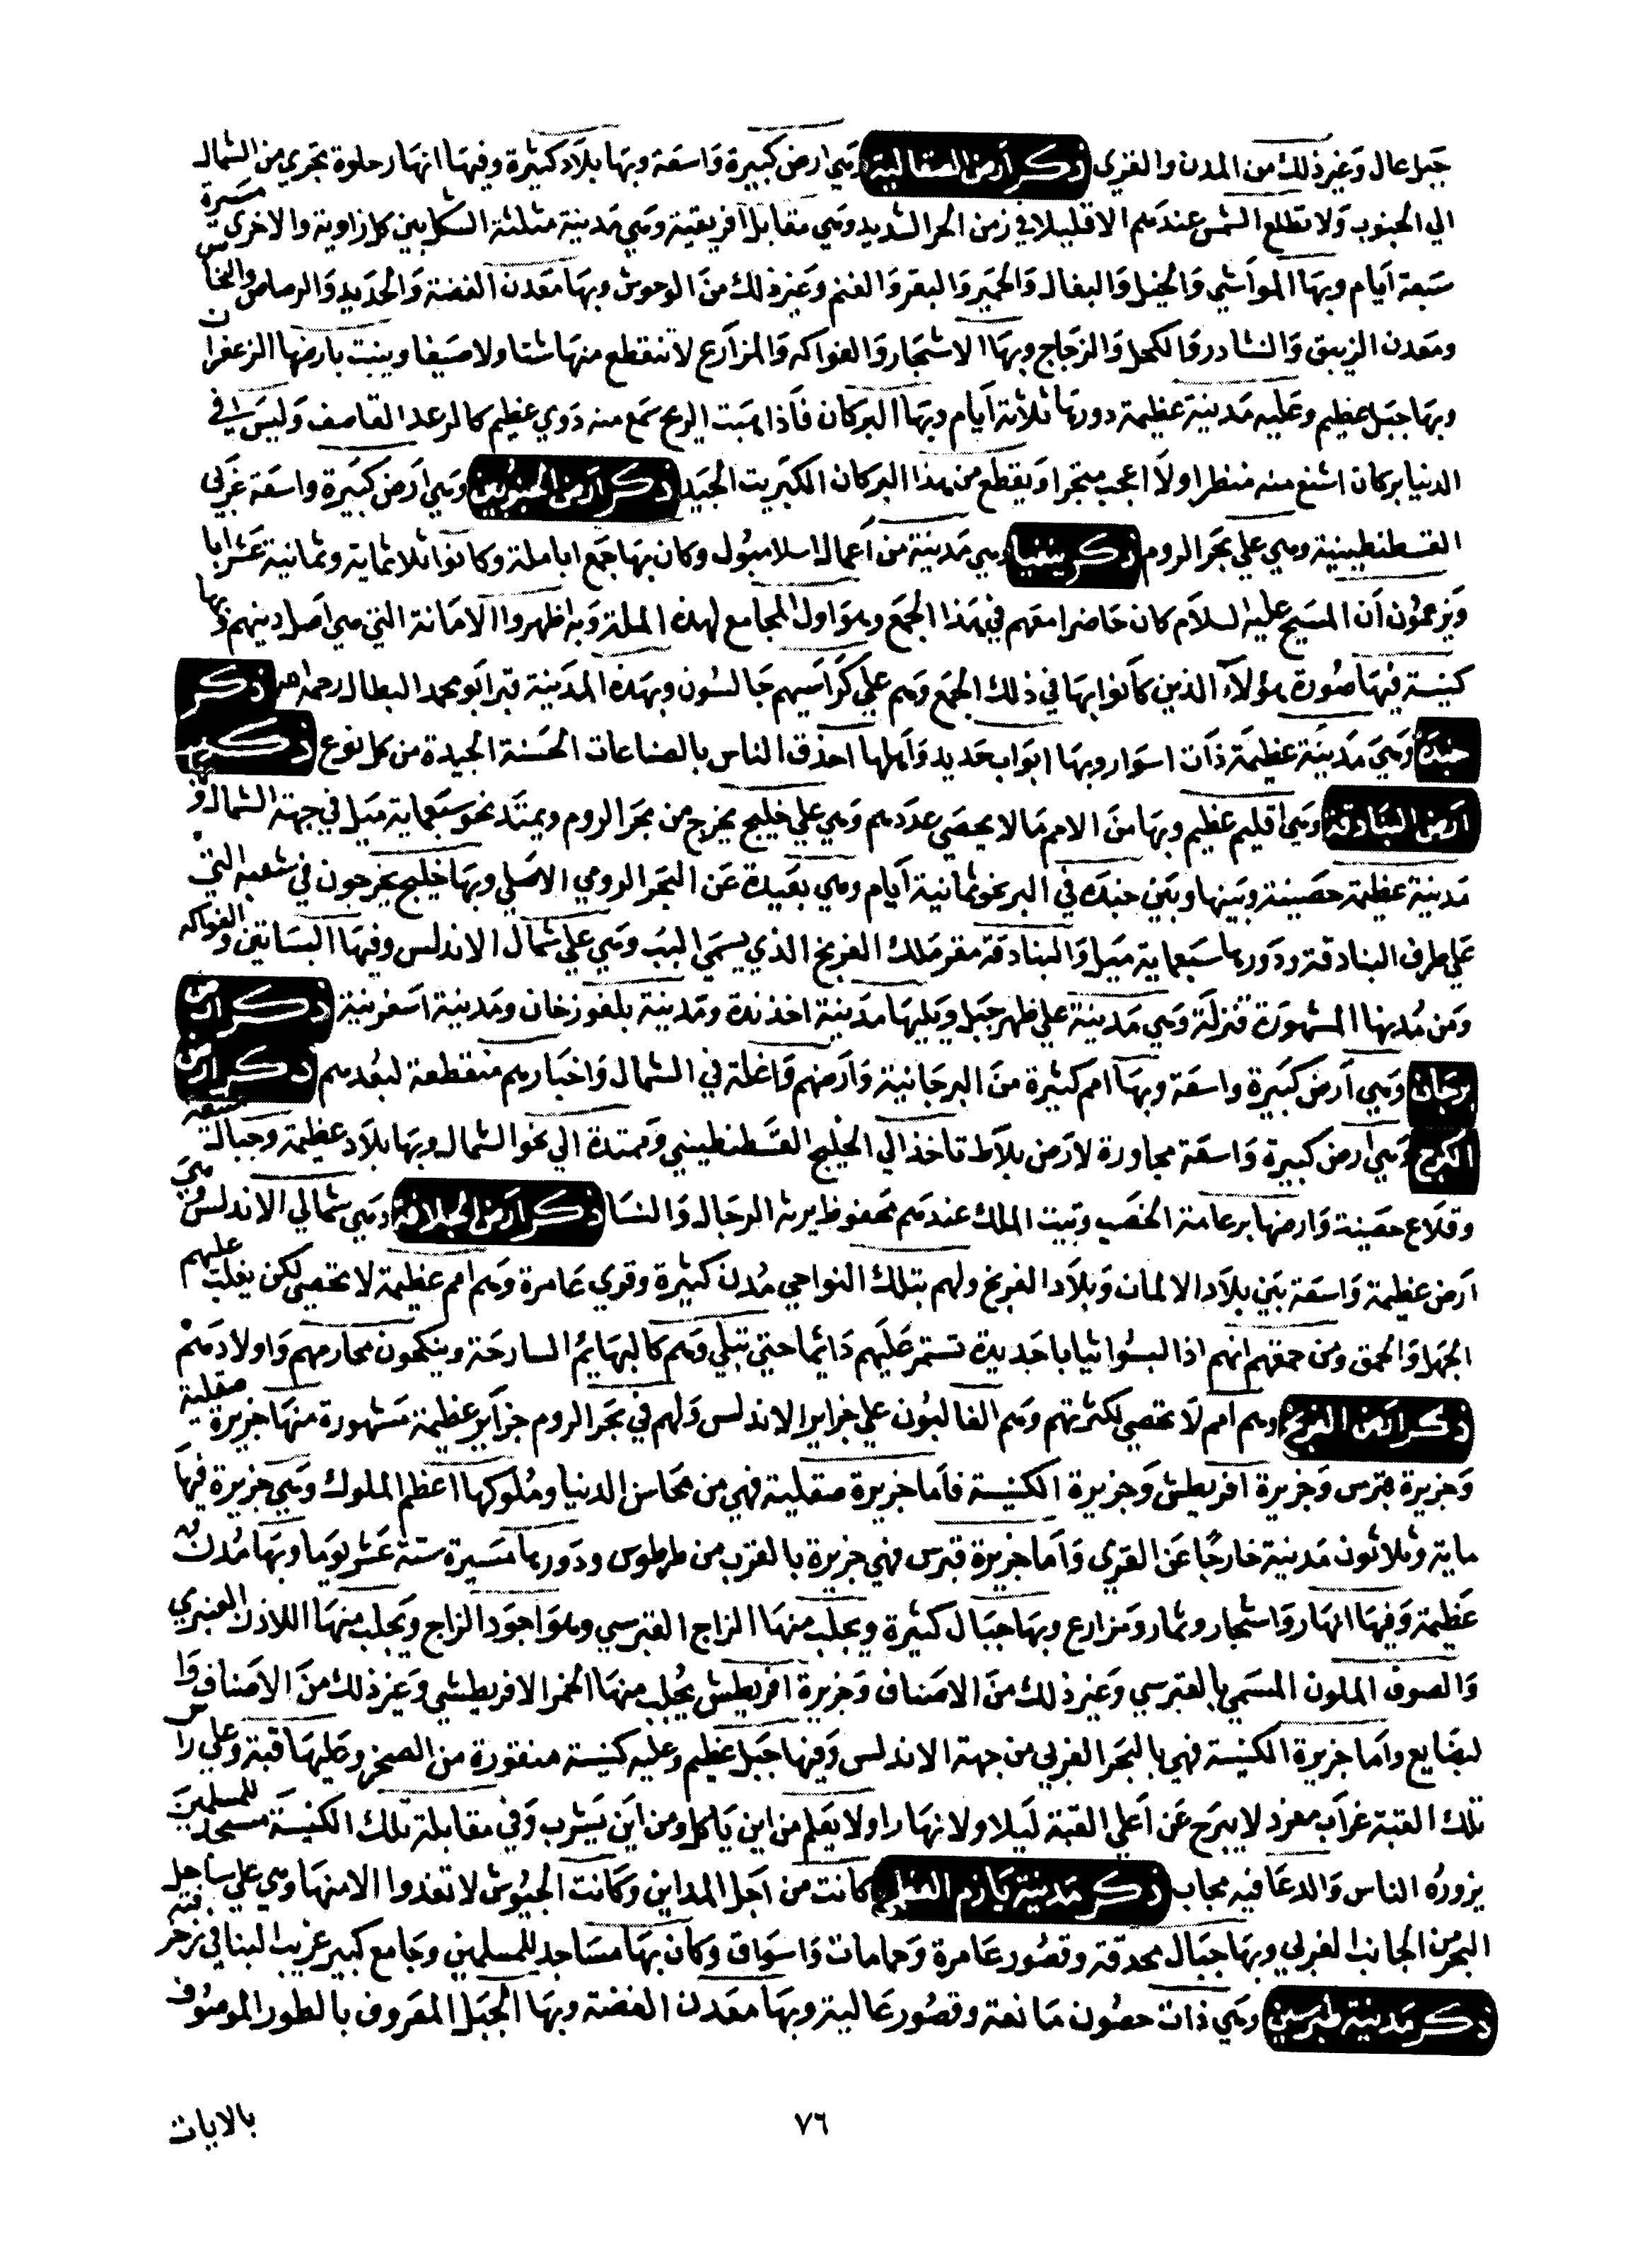 جبل عال وغير ذلك من المدن والقرى ذكر ارض الصقالبة وهي ارض كبيرة واسعة وبها بلاد كثيرة وفيها انهار حلوة تجري من الشمال
الي الجنوب ولا تطلع الشمس عندهم الا قليلا في زمن الحر الشديد وهي مقابل افريقية وهي مدينة مثلثة الشكل بين كل زاوية والاخري مسيرة
سبعة ايام وبها المواشي والخيل والبغال والحمير والبقر والغنم وغير ذلك من الوحوش وبها معدن الفضة والحديد والرصاص والنحاس
ومعدن الزيبق والنشادر والكحل والزجاج وبها الاشجار والفواكه والمزارع لا تنقطع منها شتا ولا صيفا وينبت بارضها الزعفران
وبها جبل عظيم وعليه مدينة عظيمة دورها ثلاثة ايام وبها البركان فاذا هبت الريح سمع منه دوي عظيم كالرعد القاصف وليس في
الدنيا بركان اشنع منه منظرا ولا اعجب متجرا ويقطع من هذا البركان الكبريت الجيد ذكر ارض وهي ارض كبيرة واسعة غربي
القسطنطينية وهي علي بحر الروم ذكر نيقيا وهي مدينة من اعمال اسلامبول وكان بها جمع ابا ملة وكانوا ثلاثماية وثمانية عشر ابا
ويزعمون ان المسيح عليه السلام كان حاضرا معهم في هذا الجمع وهو اول المجامع لهذه الملة وبه اظهروا الامانة التي هي اصل دينهم وبها
كنيسة فيها صورة هؤلآء الذين كانوا بها في ذلك الجمع وهم علي كراسيهم جالسون وبهذه المدينة قبر ابو محمد البطال رحمه الله ذكر
جنبدة وهي مدينة عظيمة ذات اسوار وبها ابواب حديد واهلها احذق الناس بالصناعات الحسنة الجيدة من كل نوع ذكر
ارض البنادقة وهي اقليم عظيم وبها من الامم ما لا يحصي عددهم وهي علي خليج يخرج من بحر الروم ويمتد نحو سبعماية ميل في جهة الشمال وبها
مدينة عظيمة حصينة وبينها وبين جنبده في البر نحو ثمانية ايام وهي بعيدة عن البحر الرومي الاصلي وبها خليج يخرجون في شعبه التي
علي طرف البنادقة ودورها سبعماية ميل والبنادقة مقر ملك الفرنج الذي يسمي البب وهي علي شمال الاندلس وفيها البساتين والفواكه
ومن مدنها المشهورة قزلة وهي مدينة علي ظهر جبل ويليها مدينة اخذندة ومدينة بلغوزخان ومدينة اسفرنية ذكر ارض
برجان وهي ارض كبيرة واسعة وبها امم كثيرة من البرجانية وارضهم واغلة في الشمال واخبارهم منقطعة لبعدهم ذكر ارض
الكرج وهي ارض كبيرة واسعة مجاورة لارض بلاط تاخذ الي الخليج القسطنطيني وممتدة الي نحو الشمال وبها بلاد عظيمة وجبال منيعة
وقلاع حصينة وارضها برعامة الخصب وبيت الملك عندهم محفوظ يرثه الرجال والنسا ذكر ارض الجلالقة وهي شمالي الاندلس وهي
ارض عظيمة واسعة بين بلاد الالمان وبلاد الفرنج ولهم بتلك النواحي مدن كثيرة وقري عامرة وهم امم عظيمة لا تحصي لكن يغلب عليهم
الجهل والحمق ومن حمقهم انهم اذا لبسوا ثيابا جديدة تستمر عليهم دائما حتي تبلي وهم كالبهايم السارحة وينكحون محارمهم واولادهم
ذكر ارض الفرنج وهم امم لا تحصي لكثرتهم وهم الغالبون علي جزاير الاندلس ولهم في بحر الروم جزاير عظيمة مشهورة منها جزيرة صقلية
وجزيرة قبرس وجزيرة اقريطش وجزيرة الكنيسة فاما جزيرة صقلية فهي من محاسن الدنيا وملوكها اعظم الملوك وهي جزيرة فيها
ماية وثلاثون مدينة خارجا عن القري واما جزيرة قبرس فهي جزيرة بالقرب من طرطوس ودورها مسيرة ستة عشر يوما وبها مدن
عظيمة وفيها انهار واشجار وثمار ومزارع وبها جبال كثيرة ويجلب منها الزاج القبرسي وهو اجود الزاج ويجلب منها اللاذن العنبري
والصوف الملون المسمي بالقبرسي وغير ذلك من الاصناف وجزيرة اقريطش يجلب منها الخمر الاقريطشي وغير ذلك من الاصناف وا
لبضايع واما جزيرة الكنيسة فهي بالبحر الغربي من جهة الاندلس وفيها جبل عظيم وعليه كنيسة منقورة من الصخر وعليها قبة وعلي راس
تلك القبة غراب مفرد لا يبرح عن اعلي القبة ليلا ولا نهارا ولا يعلم من اين ياكل ومن اين يشرب وفي مقابلة تلك الكنيسة مسجد للمسلمين
يزوره الناس والدعا فيه مجاب ذكر مدينة كانت من اجل المداين وكانت الجيوش لا تغدوا الا منها وهي علي ساحل
البحر من الجانب الغربي وبها جبال محدقة وقصور عامرة وحمامات واسواق وكان بها مساجد للمسلمين وجامع كبير غريب البنا في زخرفته
ذكر مدينة طبرمين وهي ذات حصون مانعة وقصور عالية وبها معدن الفضة وبها الجبل المعروف بالطور الموصوف
بالايات
٧٦